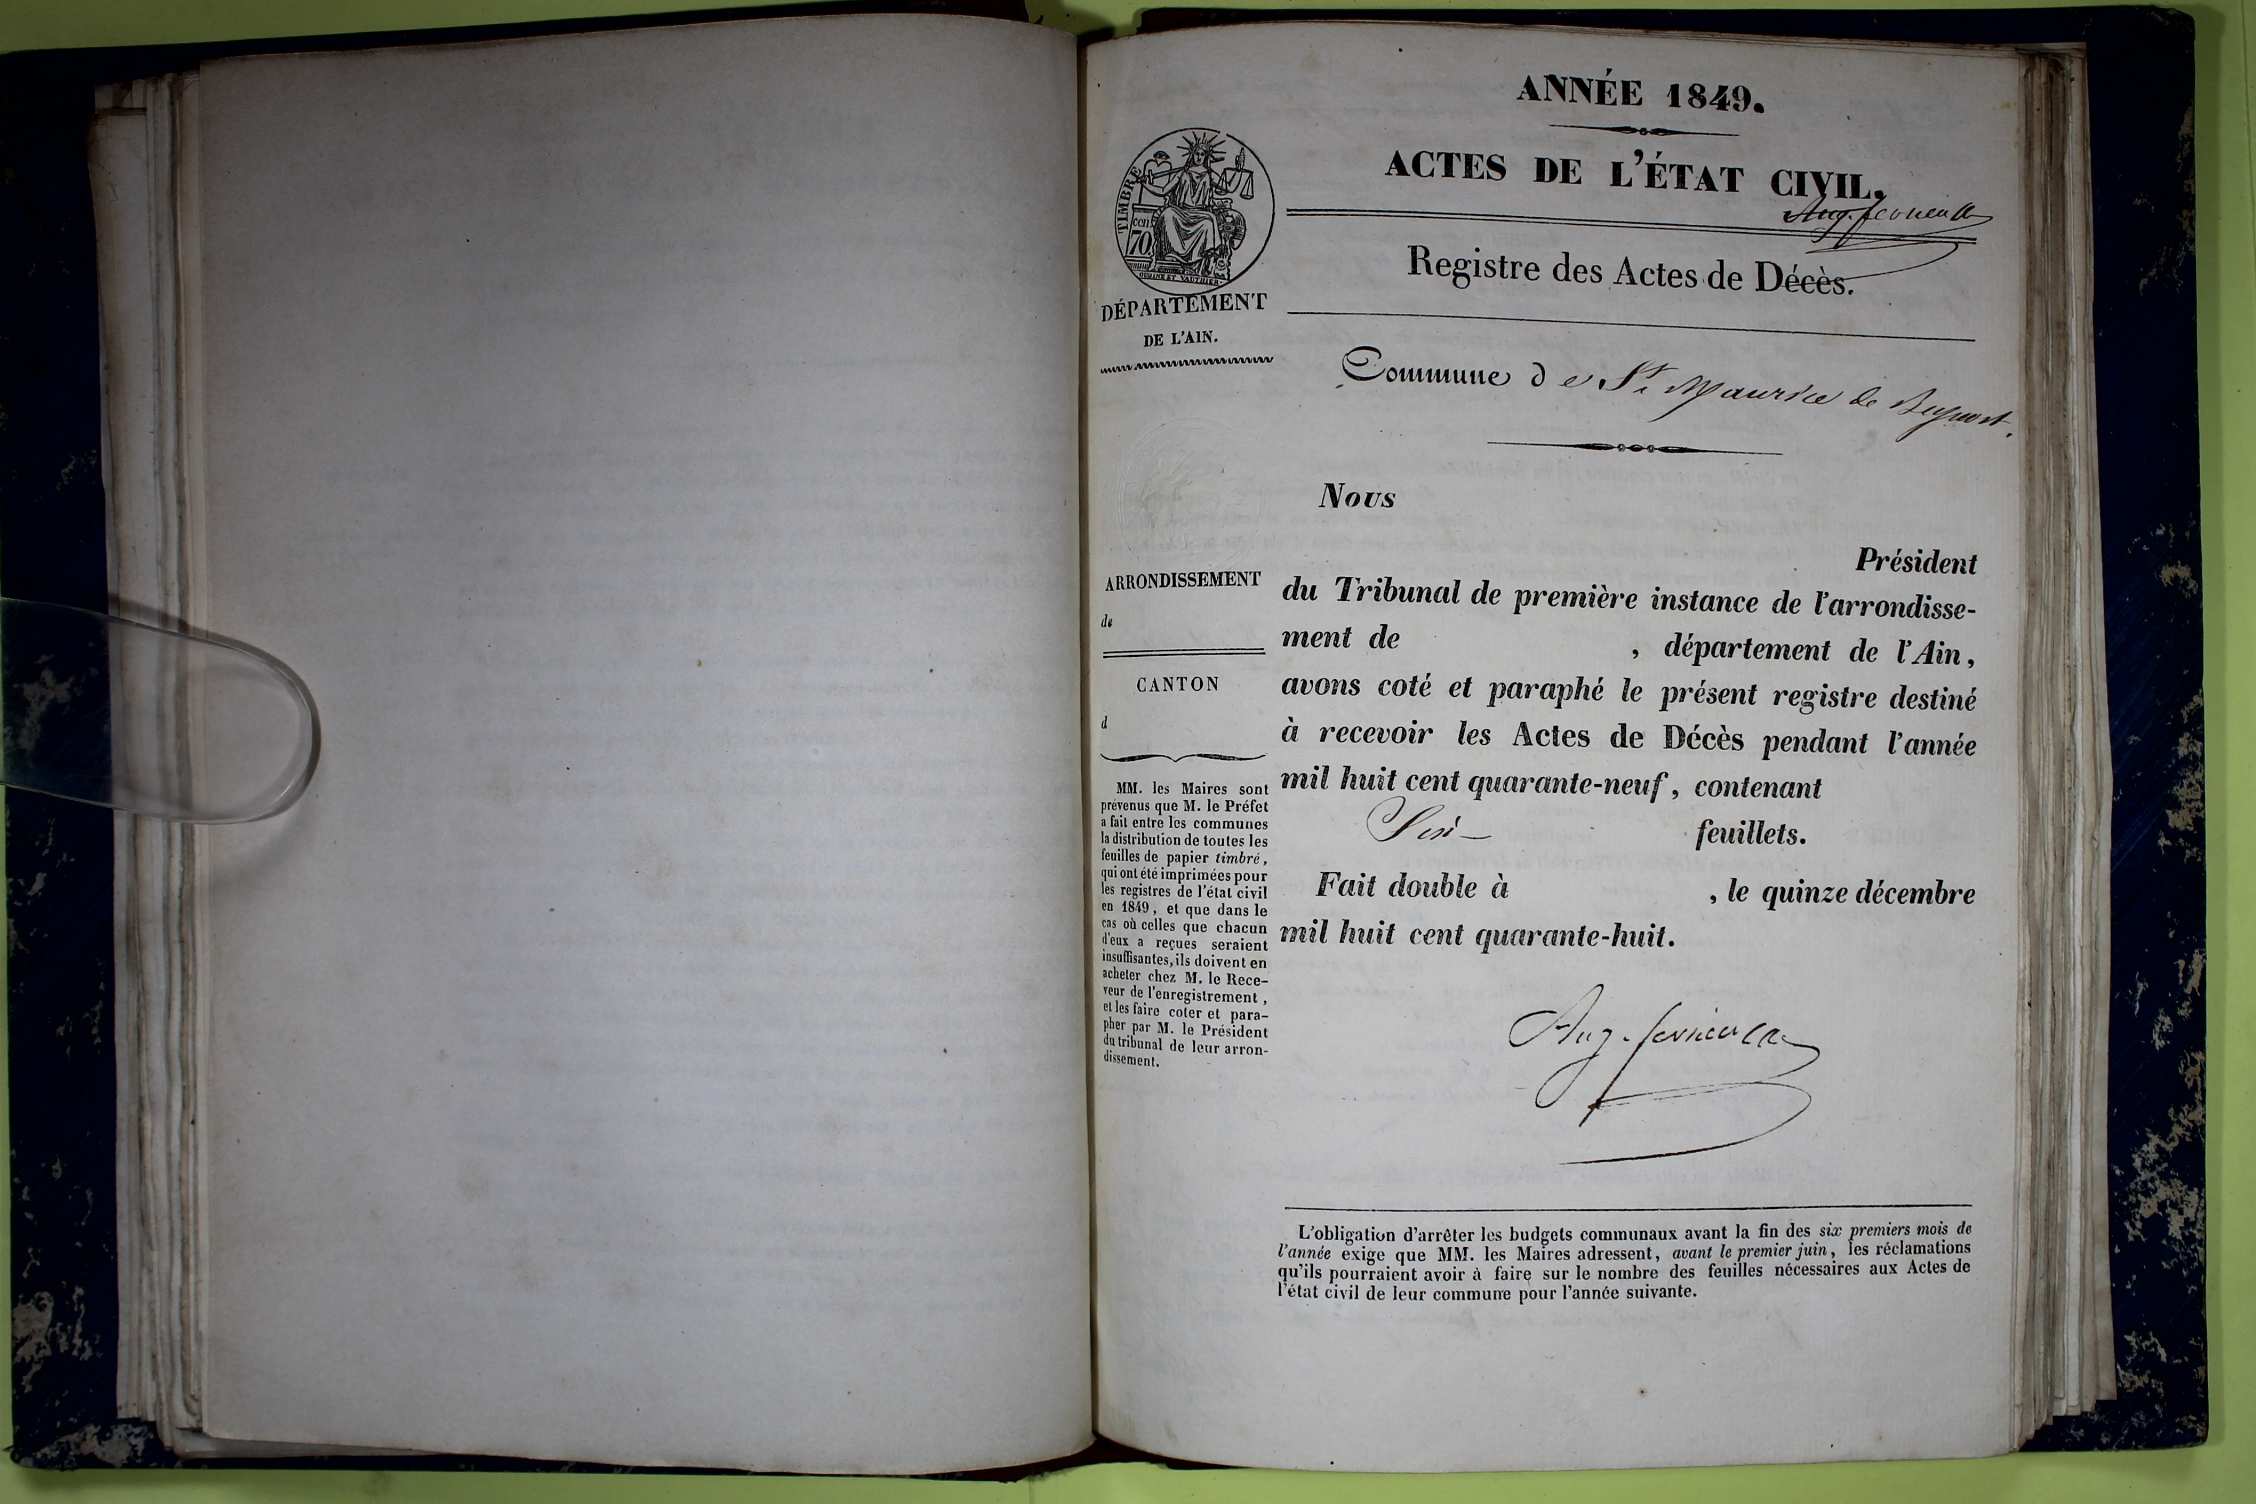 ANNÉE 1849.
ACTES DE L'ÉTAT CIVIL.
Registre des Actes de Décès.
TIMBRE
70
DÉPARTEMENT
DE L'AIN.
Commune de St. Maurice de Beynost.
ARRONDISSEMENT
de
CANTON
d
MM. les Maires sont
prévenus que M. le Préfet
a fait entre les communes
la distribution de toutes les
feuilles de papier timbré,
qui ont été imprimées pour
les registres de l'état civil
en 1849, et que dans le
cas où celles que chacun
d'eux a reçues seraient
insuffisantes, ils doivent en
acheter chez M. le Rece-
veur de l'enregistrement,
et les faire coter et para-
pher par M. le Président
du tribunal de leur arron-
dissement.
Nous
Président
du Tribunal de première instance de l'arrondisse-
ment de , département de l'Ain,
avons coté et paraphé le présent registre destiné
à recevoir les Actes de Décès pendant l'année
mil huit cent quarante-neuf, contenant
Six feuillets.
Fait double à , le quinze décembre
mil huit cent quarante-huit.
Aug.
L'obligation d'arrêter les budgets communaux avant la fin des six premiers mois de
l'année exige que MM. les Maires adressent, avant le premier juin, les réclamations
qu'ils pourraient avoir à faire sur le nombre des feuilles nécessaires aux Actes de
l'état civil de leur commune pour l'année suivante.